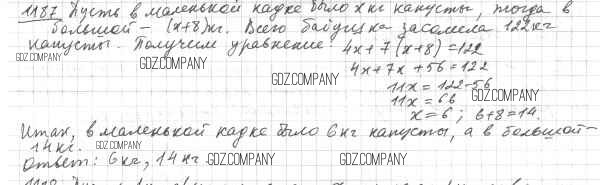 1187 Пусть в маленькой кадке было x кг капусты, тогда в
большой – (x+8) кг. Всего бабушка засолила 122 кг
капусты. Получим уравнение: 4x+7(x+8)=122
GDZ.COMPANY
GDZ.COMPANY
4x+7x+56=122
GDZ.COMPANY
11x=122-56
11x=66
GDZ.COMPANY
x=6; 6+8=14.
Итак, в маленькой кадке было 6 кг капусты, а в большой –
14 кг.
GDZ.COMPANY
Ответ: 6 кг, 14 кг.
GDZ.COMPANY
GDZ.COMPANY